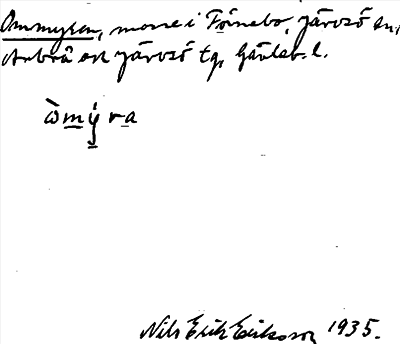 Ommyran, mosse i Förnebo, Järvsö sn,
Arbrå ock Järvsö tg, Gävleb. l.
ò̀mýra
Nils Erik Eriksson 1935.